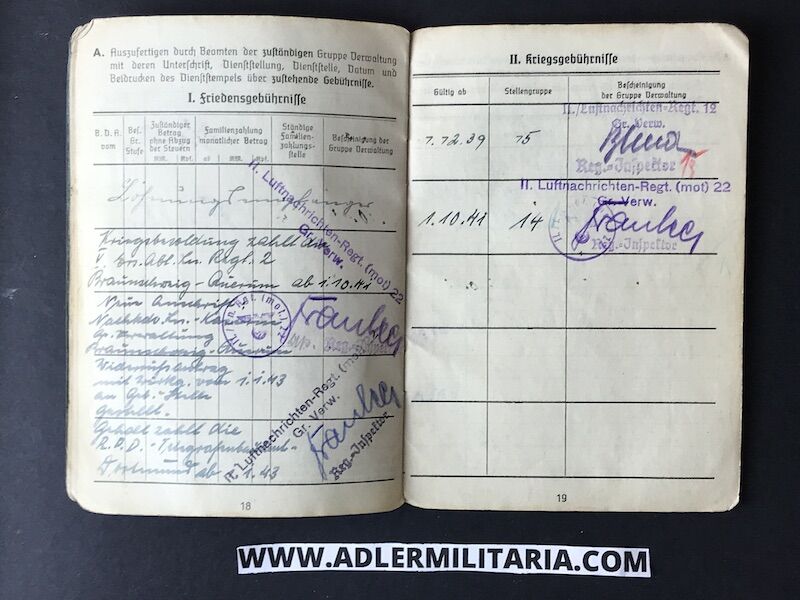 A. Auszufertigen durch Beamten der zuständigen Gruppe Verwaltung
mit deren Unterschrift, Dienststellung, Dienststelle, Datum und
Beidrucken des Dienststempels über zustehende Gebührnisse.
I. Friedensgebührnisse
B. D. A. vom
Bes. Gr. Stufe
Zuständiger Betrag ohne Abzug der Steuern
RM. Rpf.
Familienzahlung monatlicher Betrag
ab RM. Rpf.
Ständige Familien-zahlungs-stelle
Bescheinigung der Gruppe Verwaltung
Löhnungsempfänger
II. Luftnachrichten-Regt. (mot) 22
Gr. Verw.
Kriegsbesoldung zahlt die
2
Braunschweig-Querum ab 1.10.41
Neue Anschrift:
Gr. Verwaltung
Braunschweig-Querum
Widerrufsantrag
mit Wirkg. vom 1.1.43
gestellt.
Reg.-Inspektor
Gehalt zahlt die
Dortmund ab 1.43
II. Luftnachrichten-Regt. (mot) 22
Gr. Verw.
Reg.-Inspektor
18
II. Kriegsgebührnisse
Gültig ab
Stellengruppe
Bescheinigung der Gruppe Verwaltung
II./Luftnachrichten-Regt. 12
Gr. Verw.
1.12.39 15
Reg.-Inspektor
II. Luftnachrichten-Regt. (mot) 22
Gr. Verw.
1.10.41 14
Reg.-Inspektor
19
WWW.ADLERMILITARIA.COM